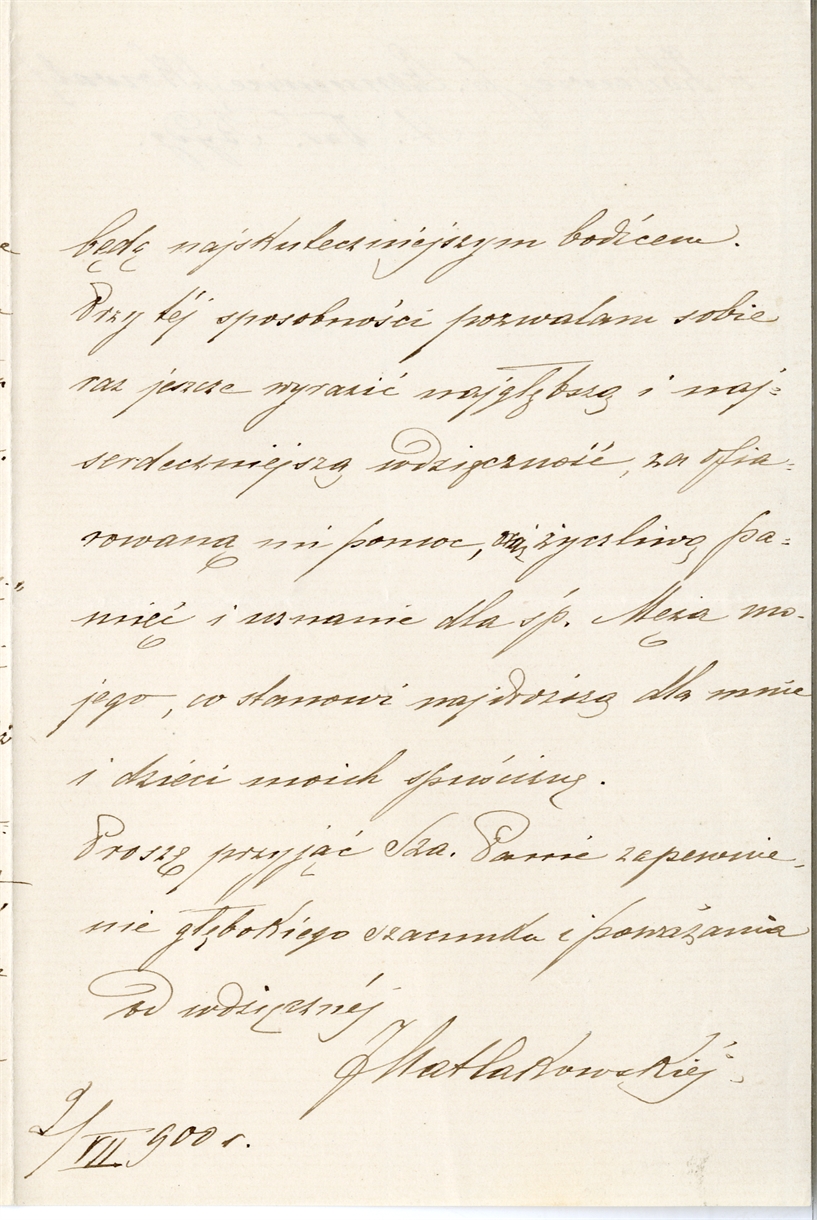 będę najskuteczniejszym bodźcem.
Przy téj sposobności pozwalam sobie
raz jeszcze wyrazić najgłębszą i naj=
serdeczniejszą wdzięczność, za ofia=
rowaną mi pomoc, życzliwą pa=
mięć i uznanie dla śp. Męża mo-
jego, co stanowi najdroższą dla mnie
i dzieci moich spuściznę.
Proszę przyjąć Sza. Panie zapewnie-
nie głębokiego szacunku i poważania
od wdzięcznéj
JMatlakowskiéj.
9/VII 900 r.